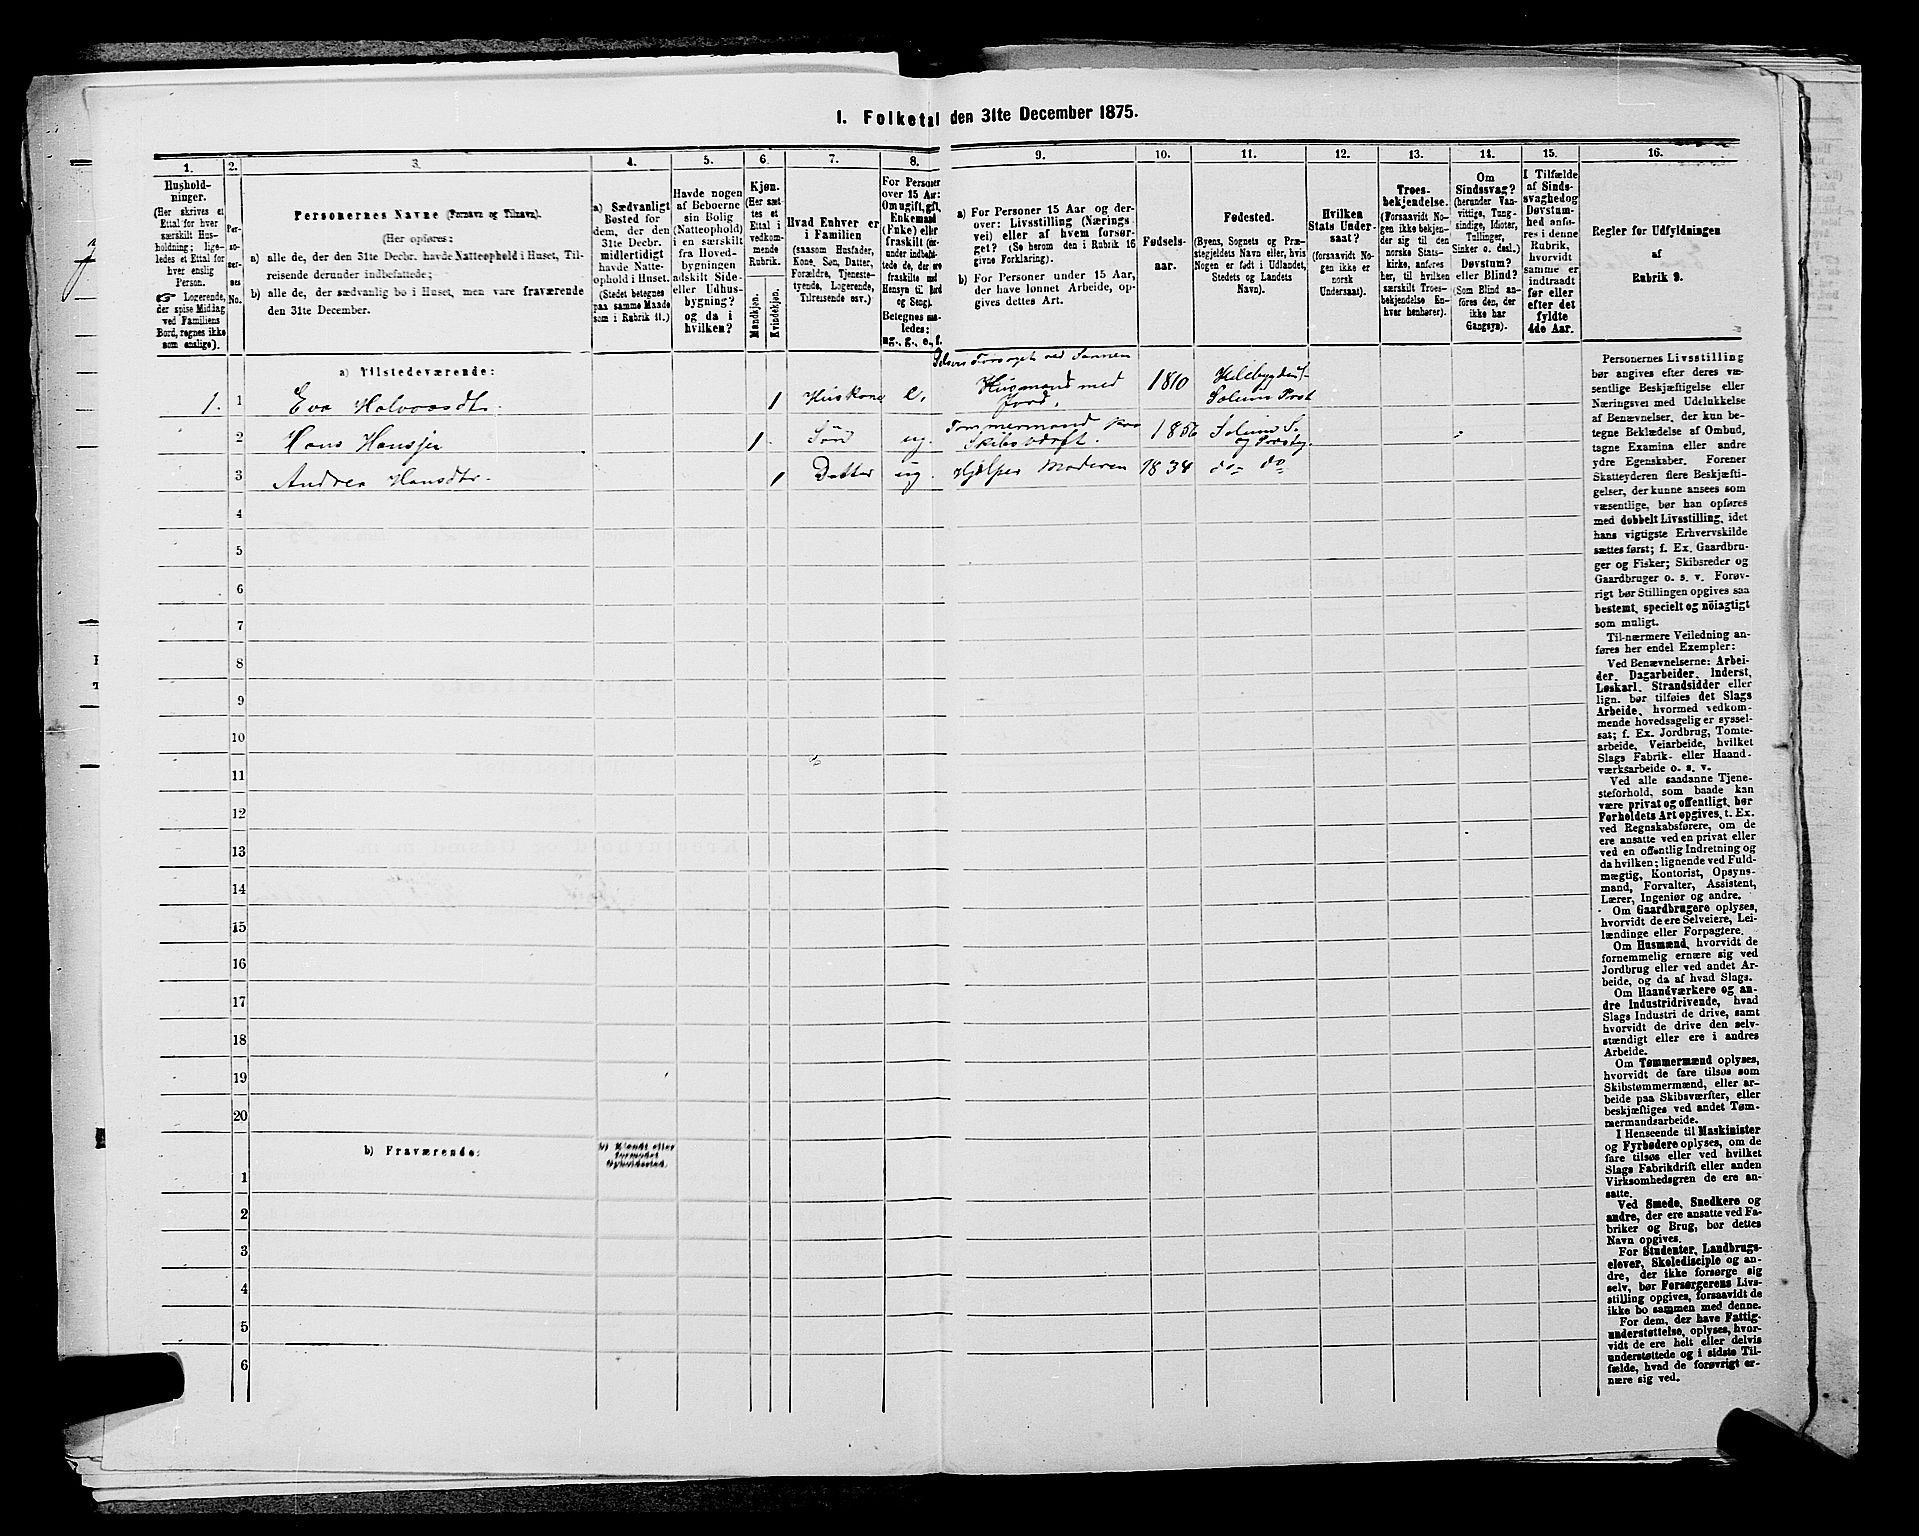 1. Folketal den 31te December 1875.
1.
2.
3.
4.
5.
6.
7.
8.
9.
10.
11.
12.
13.
14.
15.
16.
Hushold-
ninger.
(Her skrives et
Ettal for hver
særskilt Hus-
holdning; lige-
ledes et Ettal for
hver enslig
Person.
☞ Logerende,
der spise Middag
ved Familiens
Bord, regnes ikke
som enslige).
Per-
so-
ner-
nes
No.
Personernes Navne (Fornavn og Tilnavn).
(Her opføres:
a) alle de, der den 31te Decbr. havde Natteophold i Huset, Til-
reisende derunder indbefattede;
b) alle de, der sædvanlig bo i Huset, men vare fraværende
den 31te December.
a) Sædvanligt
Bosted for
dem, der den
31te Decbr.
midlertidigt
havde Natte-
ophold i Huset.
(Stedet betegnes
paa samme Maade
som i Rubrik 11.)
Havde nogen
af Beboerne
sin Bolig
(Natteophold)
i en særskilt
fra Hoved-
bygningen
adskilt Side-
eller Udhus-
bygning?
og da i
hvilken?
Kjøn.
(Her sæt-
tes et
Ettal i
vedkom-
mende
Rubrik.
Mandkjøn.
Kvindekjøn.
Hvad Enhver er
i Familien
(saasom Husfader,
Kone, Søn, Datter,
Forældre, Tjeneste-
tyende, Logerende,
Tilreisende osv.)
For Personer
over 15 Aar:
Om ugift, gift,
Enkemand
(Enke) eller
fraskilt (der-
under indbefat-
tede de, der ere
fraskilte med
Hensyn til Bord
og Seng).
Betegnes saa-
ledes:
ug., g., e., f.
a) For Personer 15 Aar og der-
over: Livsstilling (Nærings-
vei) eller af hvem forsør-
get? (Se herom den i Rubrik 16
givne Forklaring).
b) For Personer under 15 Aar,
der have lønnet Arbeide, op-
gives dettes Art.
Fødsels-
aar.
Fødested.
(Byens, Sognets og Præ-
stegjeldets Navn eller, hvis
Nogen er født i Udlandet,
Stedets og Landets
Navn).
Hvilken
Stats Under-
saat?
(forsaavidt No-
gen ikke er
norsk
Undersaat).
Troes-
bekjendelse.
(Forsaavidt No-
gen ikke bekjen-
der sig til den
norske Stats-
kirke, anføres
her, til hvilken
særskilt Troes-
bekjendelse En-
hver henhører).
Om
Sindssvag?
(herunder Van-
vittige, Tung-
sindige, Idioter,
Tullinger,
Sinker o. desl.)
Døvstum?
eller Blind?
(Som Blind an-
føres den, der
ikke har
Gangsyn).
I Tilfælde
af Sinds-
svaghed og
Døvstum-
hed anfø-
res i denne
Rubrik,
hvorvidt
samme er
indtraadt
før eller
efter det
fyldte
4de Aar.
Regler for Udfyldningen
af
Rubrik 9.
a) Tilstedeværende:
1. 1 Eva Halvorsdtr. 1 Huskone e. Husmand med Jord. 1810
Solum Præst
2 Hans Hanssen 1. Søn ug. Tømmermand paa Skibsværft. 1856 Solum S. og Præstg.
3 Andrea Hansdtr. 1 Datter ug. Hjælper Moderen 1834 do do
4
5
6
7
8
9
10
11
12
13
14
15
16
17
18
19
20
b) Fraværende:
b) Kjendt eller
formodet
Opholdssted.
1
2
3
4
5
6
Personernes Livsstilling
bør angives efter deres væ-
sentlige Beskjæftigelse eller
Næringsvei med Udelukkelse
af Benævnelser, der kun be-
tegne Beklædelse af Ombud,
tagne Examina eller andre
ydre Egenskaber. Forener
Skatteyderen flere Beskjæfti-
gelser, der kunne ansees som
væsentlige, bør han opføres
med dobbelt Livsstilling, idet
hans vigtigste Erhvervskilde
sættes først; f. Ex. Gaardbru-
ger og Fisker; Skibsreder og
Gaardbruger o. s. v. Forøv-
rigt bør Stillingen opgives saa
bestemt, specielt og nöiagtigt
som muligt.
Til nærmere Veiledning an-
føres her endel Exempler:
Ved Benævnelserne: Arbei-
der, Dagarbeider, Inderst,
Løskarl, Strandsidder eller
lign. bør tilføies det Slags
Arbeide, hvormed vedkom-
mende hovedsagelig er syssel-
sat; f. Ex. Jordbrug, Tomte-
arbeide, Veiarbeide, hvilket
Slags Fabrik- eller Haand-
værksarbeide o. s. v.
Ved alle saadanne Tjene-
steforhold, som baade kan
være privat og offentligt, bør
Forholdets Art opgives, t. Ex.
ved Regnskabsførere, om de
ere ansatte ved en privat eller
ved en offentlig Indretning og
da hvilken; lignende ved Fuld-
mægtig, Kontorist, Opsyns-
mand, Forvalter, Assistent,
Lærer, Ingeniør og andre.
Om Gaardbrugere oplyses,
hvorvidt de ere Selveiere, Lei-
lændinge eller Forpagtere.
Om Husmænd, hvorvidt de
fornemmelig ernære sig ved
Jordbrug eller ved andet Ar-
beide, og da af hvad Slags.
Om Haandværkere og an-
dre Industridrivende, hvad
Slags Industri de drive, samt
hvorvidt de drive den selv-
stændigt eller ere i andres
Arbeide.
Om Tømmermænd oplyses,
hvorvidt de fare tilsøs som
Skibstømmermænd, eller ar-
beide paa Skibsværfter, eller
beskjæftiges ved andet Tøm-
mermandsarbeide.
I Henseende til Maskinister
og Fyrbødere oplyses, om de
fare tilsøs eller ved hvilket
Slags Fabrikdrift eller anden
Virksomhedsgren de ere an-
satte.
Ved Smede, Snedkere og
andre, der ere ansatte ved Fa-
briker og Brug, bør dettes
Navn opgives.
For Studenter, Landbrugs-
elever, Skoledisciple og an-
dre, der ikke forsørge sig
selv, bør Forsørgerens Livs-
stilling opgives, forsaavidt de
ikke bo sammen med denne.
For dem, der have Fattig-
understøttelse, oplyses, hvor-
vidt de ere helt eller delvis
understøttede og i sidste Til-
fælde, hvad de forøvrigt er-
nære sig ved.